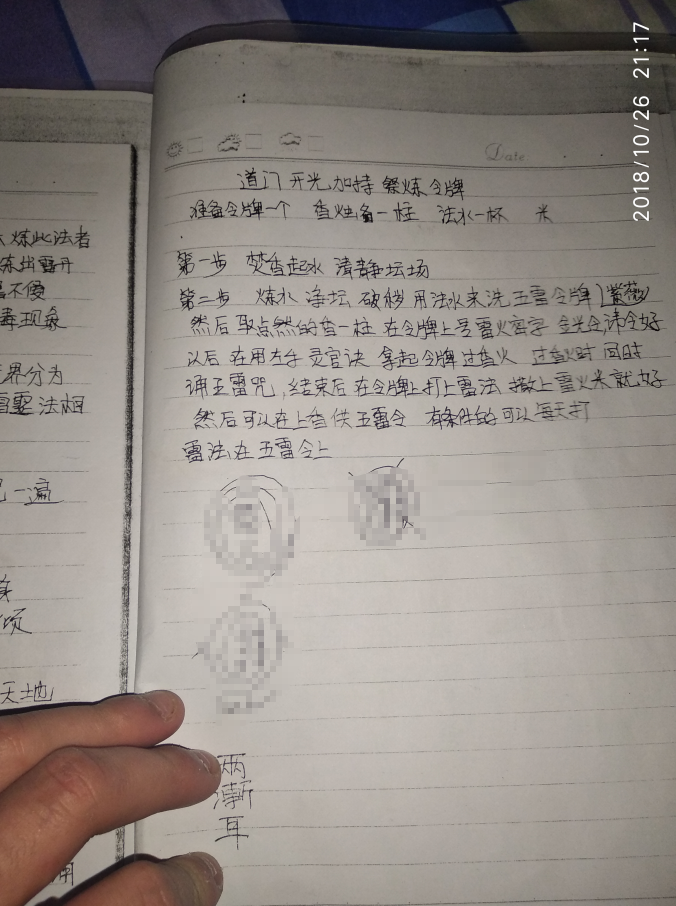 2018/10/26 21:17
Date
道门开光加持祭炼令牌
准备令牌一个 香烛备一柱 法水一杯 米
第一步 焚香起水 清静坛场
第二步 炼水 净坛 破秽 用法水来洗五雷令牌(紫薇)
然后取点然的香一柱 在令牌上 雷火密字 金光令 好
以后 在用左手 灵官诀 拿起令牌过香火 过香火时 同时
诵五雷咒,结束后 在令牌上打上雷法 撒上雷火米就好
然后可以在上香供五雷令 有条件的可以每天打
雷法在五雷令上
两
渐
耳
炼此法者
界分为
法相
一遍
天地